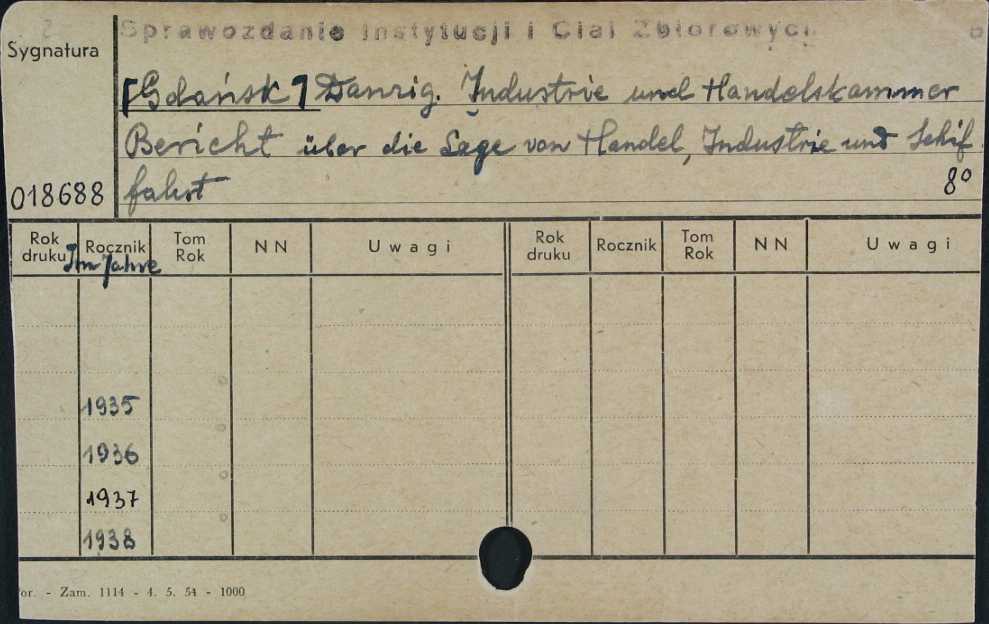 Sprawozdanie Instytucji i Ciał Zbiorowych
Sygnatura
[Gdańsk] Danzig. Industrie und Handelskammer
Bericht über die Lage von Handel, Industrie und Schif
fahrt 8º
018688
Rok druku Rocznik Tom Rok NN Uwagi Rok druku Rocznik Tom Rok NN Uwagi
Im Jahre
1935
1936
1937
1938
or. - Zam. 1114 - 4. 5. 54 - 1000